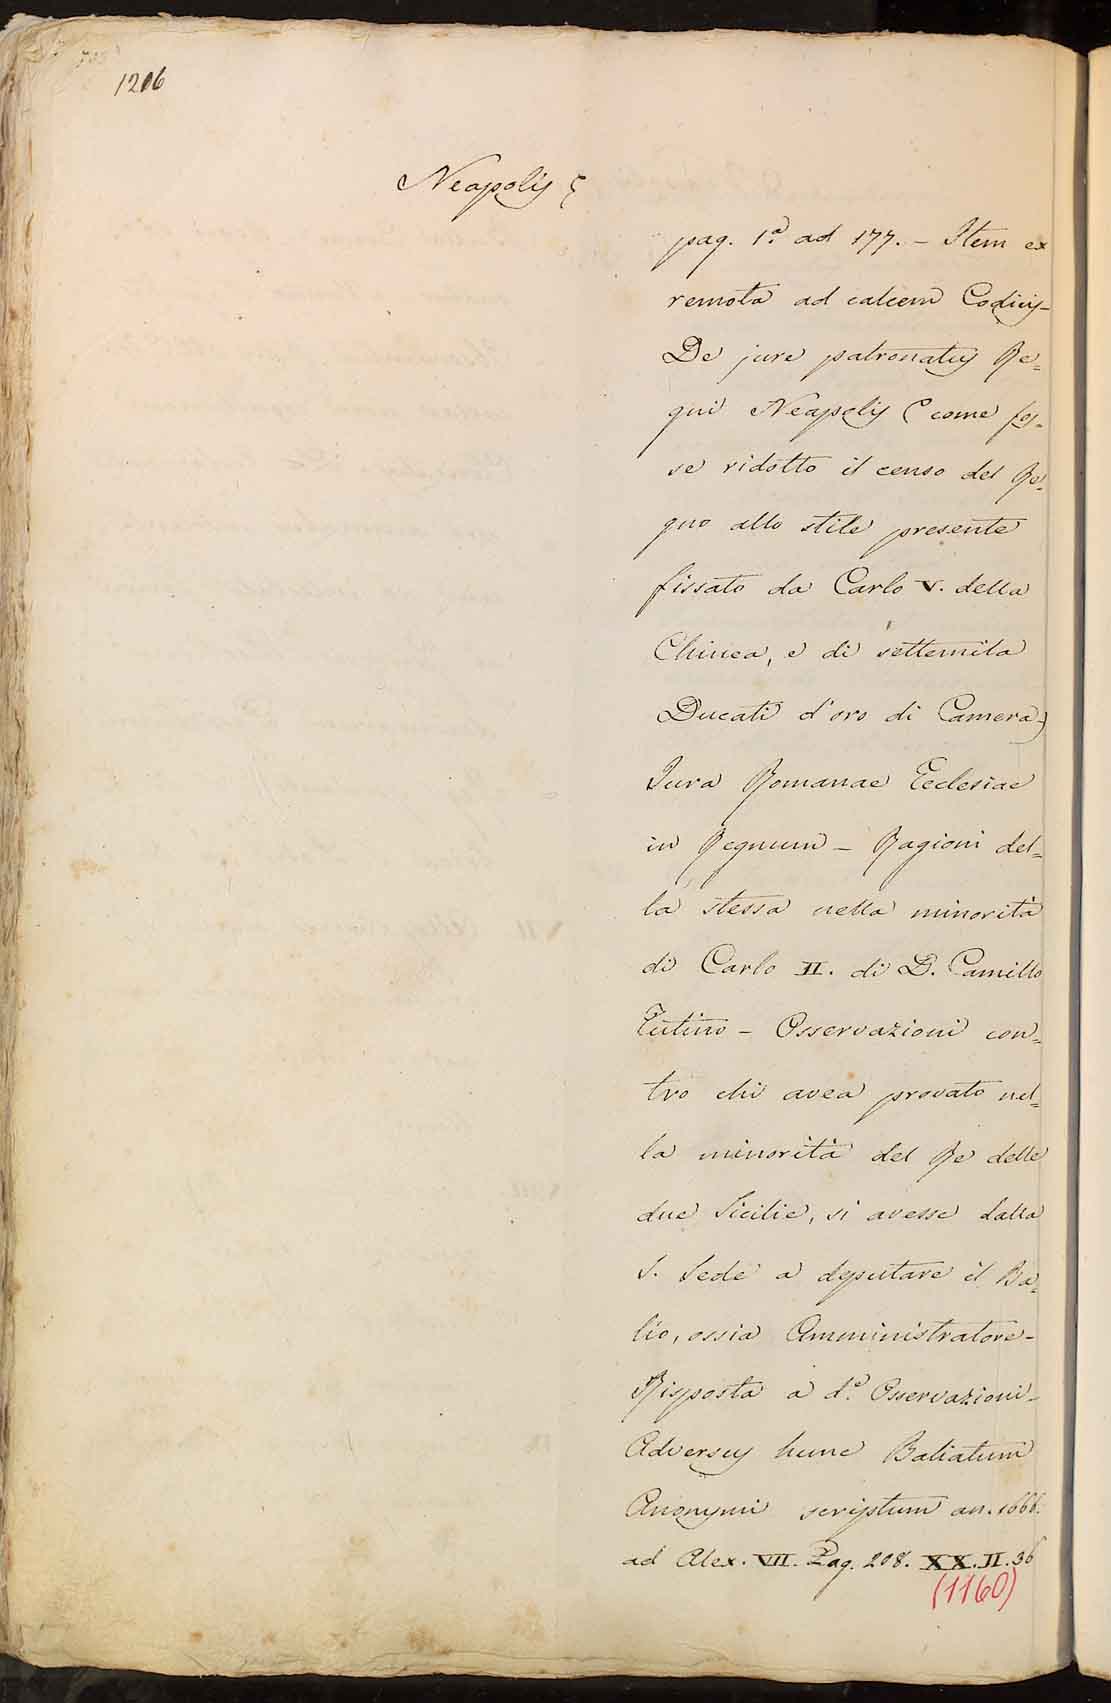 1206
Neapolis
pag. 1.ª ad 177. - Item ex
remota ad calcem Codicis -
De jure patronatus Re=
gni Neapolis (come fos=
se ridotto il censo del Re=
gno allo stile presente
fissato da Carlo V. della
Chinea, e di settemila
Ducati d'oro di Camera)
Jura Romanae Ecclesiae
in Regnum - Ragioni del=
la stessa nella minorità
di Carlo II. di D. Camillo
Tutino - Osservazioni con=
tro chi avea provato nel=
la minorità del Re delle
due Sicilie, si avesse dalla
S. Sede a deputare il Ba=
lio, ossia Amministratore -
Risposta a d.e Osservazioni -
Adversus hunc Baliatum
Anonymi scriptum an. 1666.
ad Alex. VII. Pag. 208. XX. II. 36
(1160)